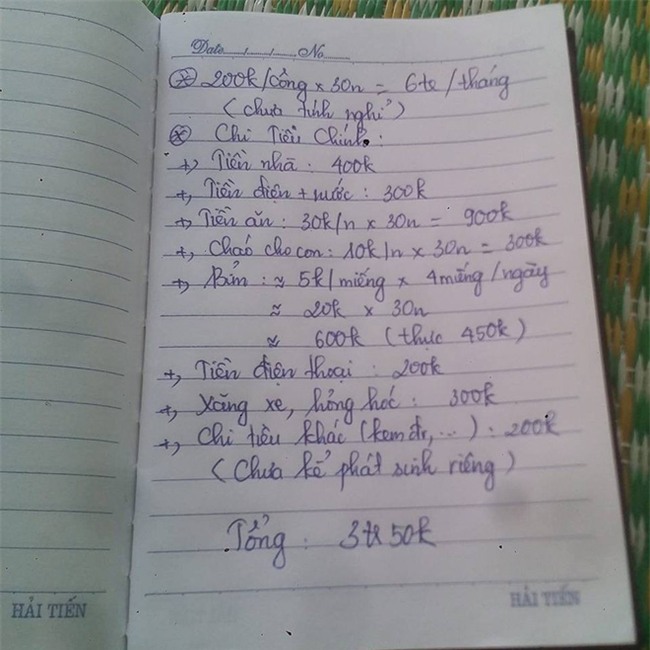 Date...../...../.....No.........
* 200k/công x 30n = 6tr/tháng
(chưa tính nghỉ)
* Chi Tiêu Chính:
+, Tiền nhà: 400k
+, Tiền điện + nước: 300k
+, Tiền ăn: 30k/n x 30n = 900k
+, Cháo cho con: 10k/n x 30n = 300k
+, Bỉm: ≈ 5k/miếng x 4miếng/ngày
≈ 20k x 30n
≈ 600k (thực 450k)
+, Tiền điện thoại: 200k
+, Xăng xe, hỏng hóc: 300k
+, Chi tiêu khác (kem đr, ...): 200k
(Chưa kể phát sinh riêng)
Tổng: 3tr 50k
HẢI TIẾN HẢI TIẾN